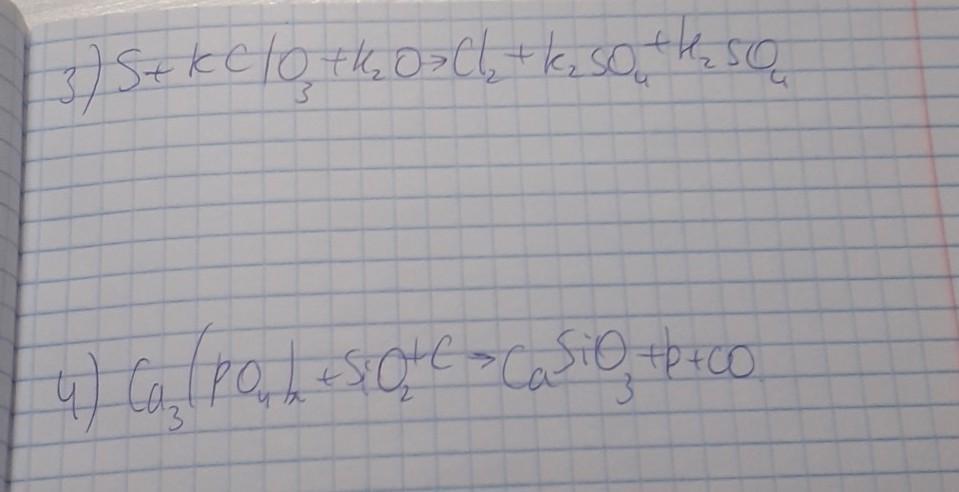 3) S + KClO₃ + K₂O → Cl₂ + K₂SO₄ + K₂SO₄
4) Ca₃(PO₄)₂ + SiO₂ + C → CaSiO₃ + P + CO